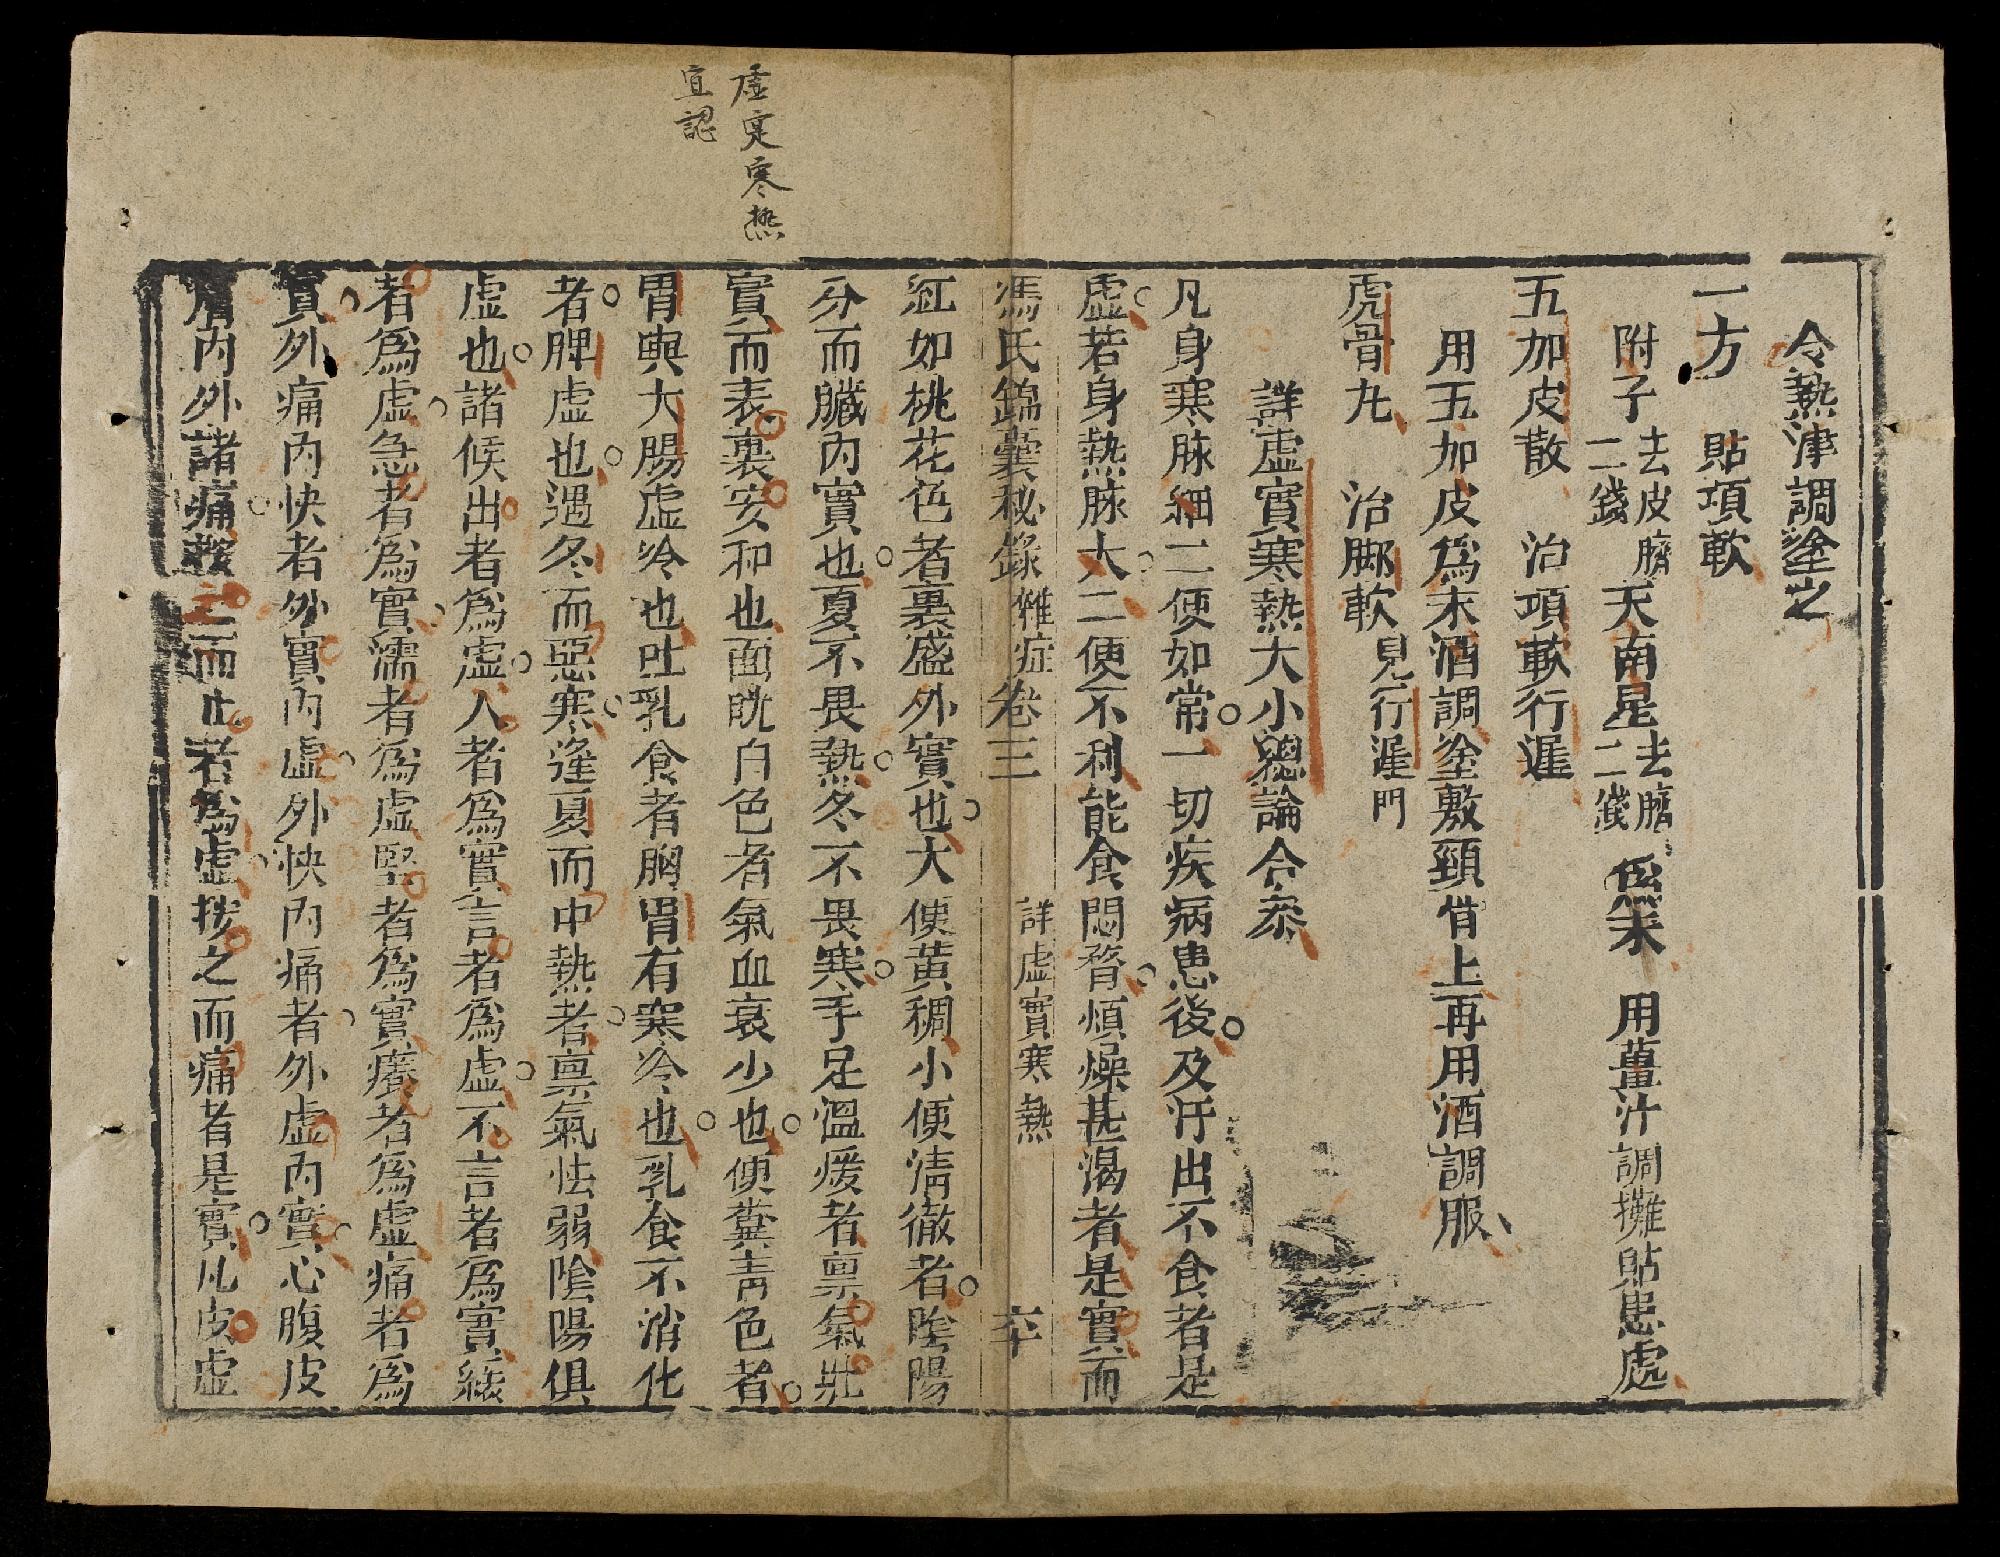 令熱津調塗之
一方　貼項軟
附子去皮臍二錢天南星去臍二錢為末　用薑汁調攤貼患處
五加皮散　治項軟行遲
用五加皮為末酒調塗敷頸骨上再用酒調服
虎骨丸　治脚軟見行遲門
詳虛實寒熱大小總論合叅
凡身寒脉細二便如常一切疾病患後及汗出不食者是
虛若身熱脉大二便不利能食悶瞀煩燥甚渴者是實而
馮氏錦囊秘錄雜症卷三　詳虛實寒熱
紅如桃花色者裏盛外實也大便黃稠小便清徹者陰陽
分而臟內實也夏不畏熱冬不畏寒手足溫煖者禀氣壯
實而表裏安和也面㿠白色者氣血衰少也便糞青色者
胃與大腸虛冷也吐乳食者胸胃有寒冷也乳食不消化
者脾虛也遇冬而惡寒逢夏而中熱者禀氣怯弱陰陽俱
虛也諸候出者為虛入者為實言者為虛不言者為實緩
者為虛急者為實濡者為虛堅者為實癢者為虛痛者為
實外痛內快者外實內虛外快內痛者外虛內實心腹皮
膚內外諸痛按之而止者為虛按之而痛者是實凡皮虛
虛寔寒熱
宜認